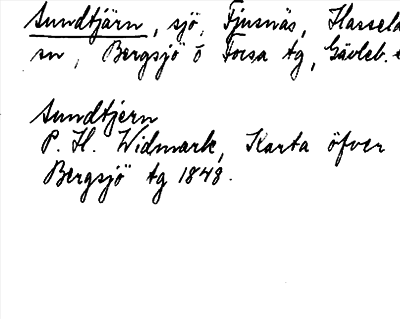 Sundtjärn, sjö, Fjusnäs, Hassela
sn, Bergsjö o Forsa tg, Gävleb.
Sundtjern
P. H. Widmark, Karta öfver
Bergsjö tg 1848.